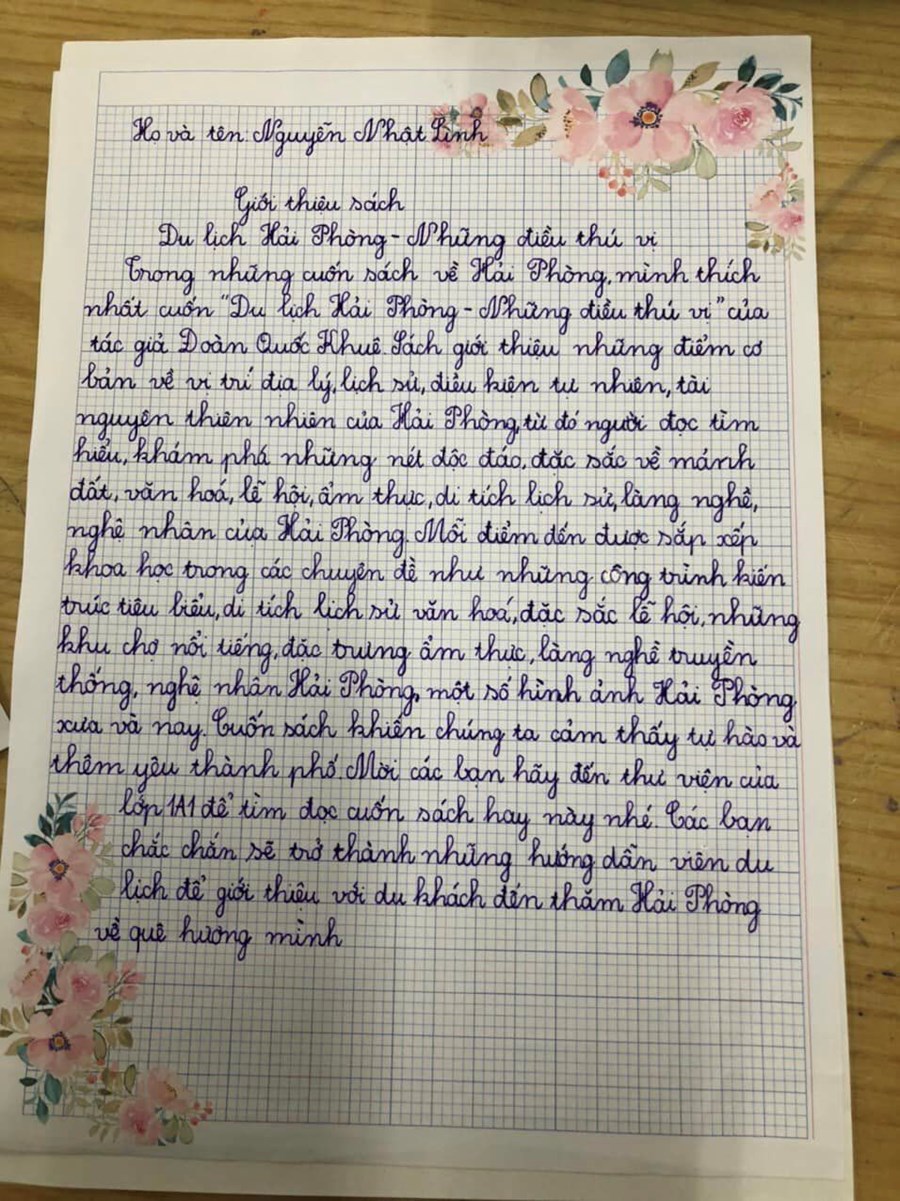 Họ và tên: Nguyễn Nhật Linh
Giới thiệu sách
Du lịch Hải Phòng - Những điều thú vị
Trong những cuốn sách về Hải Phòng, mình thích
nhất cuốn "Du lịch Hải Phòng - Những điều thú vị" của
tác giả Đoàn Quốc Khuê. Sách giới thiệu những điểm cơ
bản về vị trí địa lý, lịch sử, điều kiện tự nhiên, tài
nguyên thiên nhiên của Hải Phòng, từ đó người đọc tìm
hiểu, khám phá những nét độc đáo, đặc sắc về mảnh
đất, văn hoá, lễ hội, ẩm thực, di tích lịch sử, làng nghề,
nghệ nhân của Hải Phòng. Mỗi điểm đến được sắp xếp
khoa học trong các chuyên đề như những công trình kiến
trúc tiêu biểu, di tích lịch sử văn hoá, đặc sắc lễ hội, những
khu chợ nổi tiếng, đặc trưng ẩm thực, làng nghề truyền
thống, nghệ nhân Hải Phòng, một số hình ảnh Hải Phòng
xưa và nay. Cuốn sách khiến chúng ta cảm thấy tự hào và
thêm yêu thành phố. Mời các bạn hãy đến thư viện của
lớp 1A1 để tìm đọc cuốn sách hay này nhé. Các bạn
chắc chắn sẽ trở thành những hướng dẫn viên du
lịch để giới thiệu với du khách đến thăm Hải Phòng
về quê hương mình